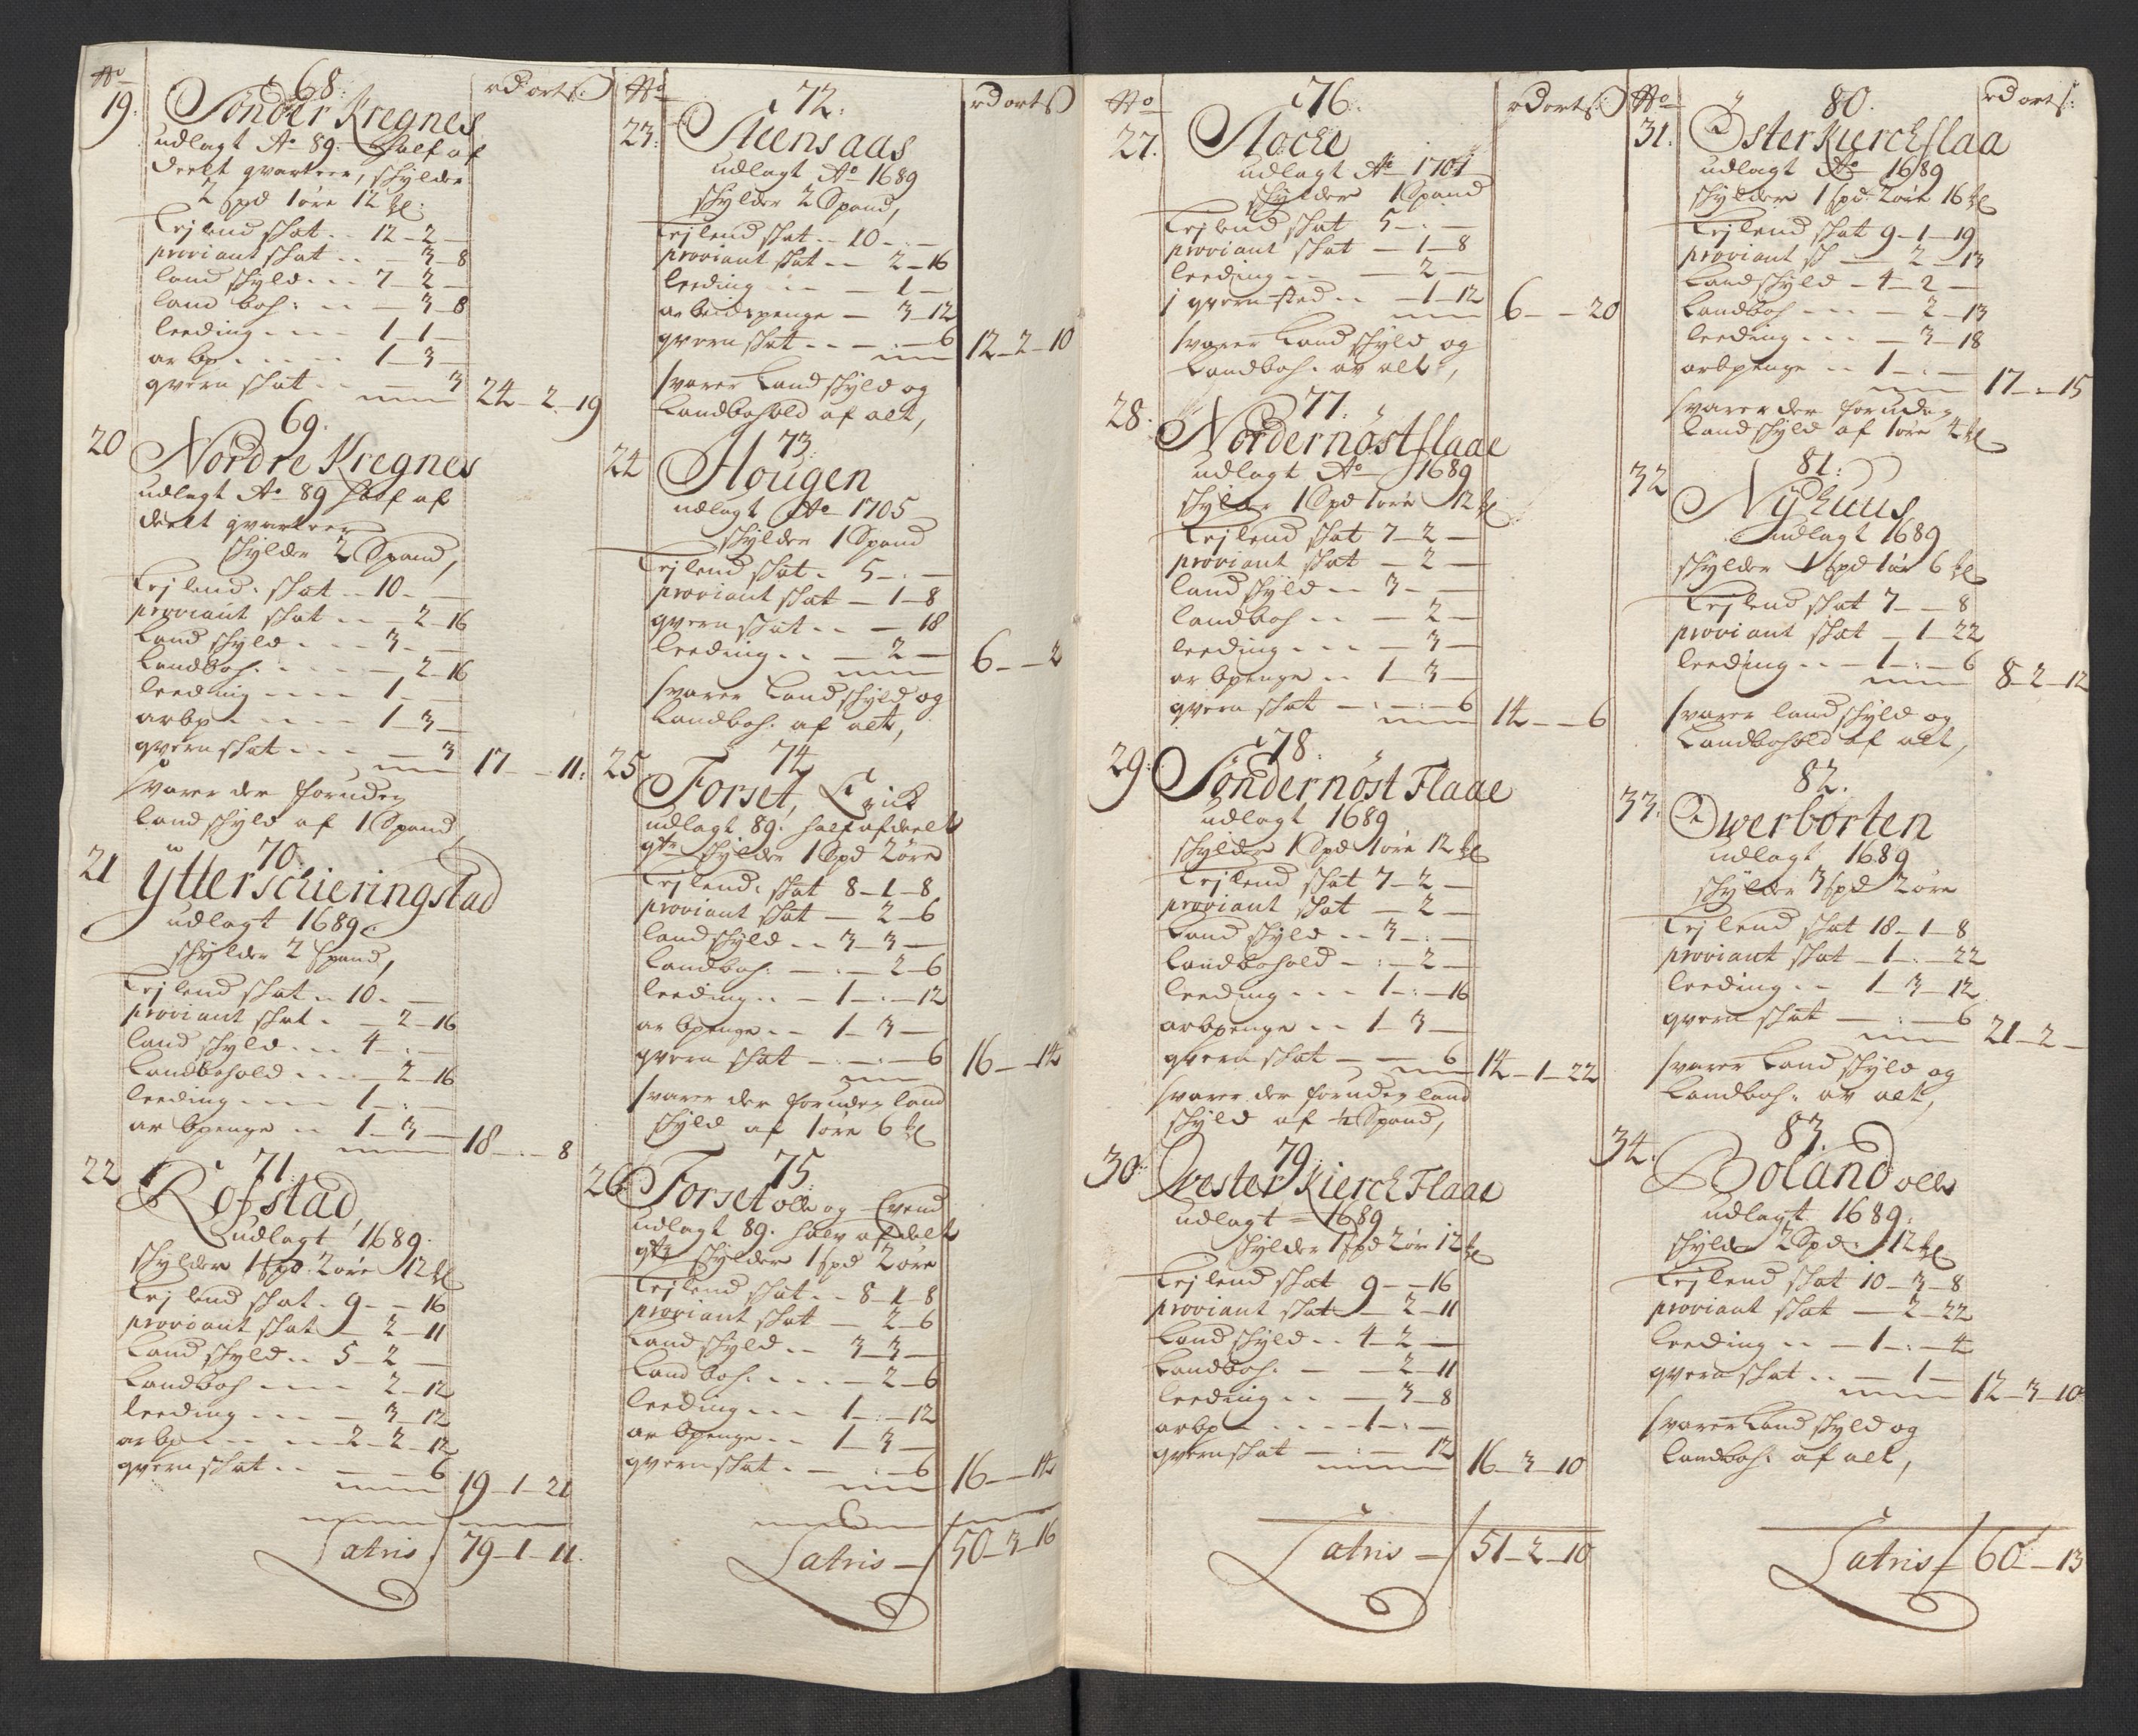 No 68: rd ort s:
19: Sönder Kregnes
udlagt Ao 89. Half af
deelt qvarteer, skylder
2 spd 1 øre 12 ₰:
Leylend skat - - 12 - 2 -
proviant skat - - - 3 - 8
land skyld - - - 7 - 2 -
land boh: - - - 3 - 8
leeding - - - - 1 - 1 -
arbp - - - - - 1 - 3 -
qvern skat - - - - 3 24 - 2 - 19
69.
20 Nordre Kregnes
udlagt Ao 89 half af
deelt qvarteer
skylder 2 Spand,
Leylend: skat - - 10 - -
proviant skat - - - 2 - 16
Landskyld - - - 3 - -
Landboh: - - - - 2 - 16
leeding - - - - 1 - -
arbp - - - - - 1 - 3 -
qvern skat - - - - 3 17 - - 11:
svarer der foruden
landskyld af 1 Spand,
70.
21 Ytterschieringstad
udlagt 1689
skylder 2 Spand,
Leylend skat - - 10 - -
proviant skat - - 2 - 16
land skyld - - - 4 - : -
Landbohold - - - - 2 - 16
leeding - - - - 1 - : -
arbpenge - - 1 - 3 - 18 - : - 8
71.
22 Rofstad,
udlagt 1689.
skylder 1 spd 2 øre 12 ₰
Leylend skat - 9 - - 16
proviant skat - 2 - 11
Land skyld - - 5 - 2 -
Landboh - - - - 2 - 12
leeding - - - - 3 - 12
arbp - - - - 2 - 2 - 12
qvern skat - - - - 6 19 - 1 - 21
Latris / 79 - 1 - 11.
No 72: rd ort s
23: Steensaas
udlagt Ao 1689
skylder 2 Spand,
Leylend skat - - 10 - : -
proviant skat - - 2 - 16
leeding - - - 1 -
arbeidspenge - 3 - 12
qvern skat - - - : - 6 12 - 2 - 10
svarer Landskyld og
Landbohold af alt,
73.
24 Hougen
udlagt Ao 1705
skylder 1 Spand
Leylend skat - 5 - : -
proviant skat - 1 - 8
qvern skat - - - 18
leeding - - - 2 - 6 - - 2
svarer Landskyld og
Landboh: af alt,
74
25 Forset, Erick
udlagt 89. half afdeelt
qtr skylder 1 Spd 2 øre
Leylend: skat 8 - 1 - 8
proviant skat - 2 - 6
landskyld - - 3 - 3 -
Landboh: - : - 2 - 6
leeding - - - 1 - : - 12
arbpenge - - 1 - 3 -
qvern skat - : - : - 6 16 - - 14
svarer der foruden land
skyld af 1 øre 6 ₰
75.
26. Forset olle og Evend
udlagt 89. halv afdelt
qtr skylder 1 spd 2 øre
Leylend skat - - 8 - 1 - 8
proviant skat - 2 - 6
Landskyld - - 3 - 3 -
Landboh: - - - - 2 - 6
leeding - - - 1 - : - 12
arbpenge - - 1 - 3 -
qvern skat - - : - 6 16 - - 14
Latris - / 50 - 3 - 16
No 76. rd ort s:
27. Stocke
udlagt Ao 1701
skylder 1 Spand
Leylend skat 5 - : -
proviant skat - 1 - 8
leeding - - - 2 -
1 qvernsted - - - 1 - 12 6 - - 20
svarer Landskyld og
Landboh: av alt,
77.
28: Nordernöstflaae
udlagt Ao 1689
skylder 1 Spd 1 øre 12 ₰
Leylend skat 7 - 2 -
proviant skat - 2 -
landskyld - - 3 - -
landboh - - - 2 -
leeding - - - - 3 -
arbpenge - - 1 - 3 -
qvern skat - : - : - 6 14 - - 6
78.
29: Söndernöst Flaae
udlagt 1689
skylder 1 Spd 1 øre 12 ₰
Leylend skat 7 - 2 -
proviant skat - 2 -
Landskyld - - 3 - : -
Landbohold - : - 2 -
leeding - - - 1 - : - 16
arbpenge - - 1 - 3 -
qvern skat - - 6 14 - 1 - 22
svarer der foruden land
skyld af ½ Spand,
79.
30: Vester Kierch Flaae
udlagt 1689
skylder 1 spd 2 øre 12 ₰
Leylend skat 9 - - 16
proviant skat - 2 - 11
Landskyld - - 4 - 2 -
Landboh: - - 2 - 11
leeding - - - 3 - 8
arbp - - - - 1 - : -
qvern skat - : - 12 16 - 3 - 10
Latris - / 51 - 2 - 10
No 80. rd ort s:
31. Öster Kierchflaa
udlagt Ao 1689
skylder 1 spd 2 øre 16 ₰
Leylend skat 9 - 1 - 19
proviant sk - 2 - 13
Landskyld - 4 - 2 -
Landboh - - - - 2 - 13
leeding - - - - 3 - 18
arbpenge - - 1 - : - 17 - : - 15
svarer der foruden
Landskyld af 1 øre 4 ₰
81:
32 Nyhuus
udlagt 1689
skylder 1 spd 1 ør 6 ₰
Leylend skat 7 - - 8
proviant skat - 1 - 22
leeding - - - 1 - : - 6 8 - 2 - 12
svarer landskyld og
Landbohold af alt,
82.
33. Owerborten
udlagt 1689
skylder 3 spd 2 øre
Leylend skat 18 - 1 - 8
proviant skat - 1 - : - 22
leeding - - 1 - 3 - 12
qvern skat - : - 6 21 - 2 -
svarer Landskyld og
Landboh: av alt,
83.
34. Boland olle
udlagt 1689.
skylder 2 Spd: 12 ₰
Leylend skat 10 - 3 - 8
proviant skat - 2 - 22
leeding - - - 1 - : - 4
qvern skat - - - 1 - 12 - 3 - 10
svarer Landskyld og
Landboh: af alt,
Latris / 60 - - 13